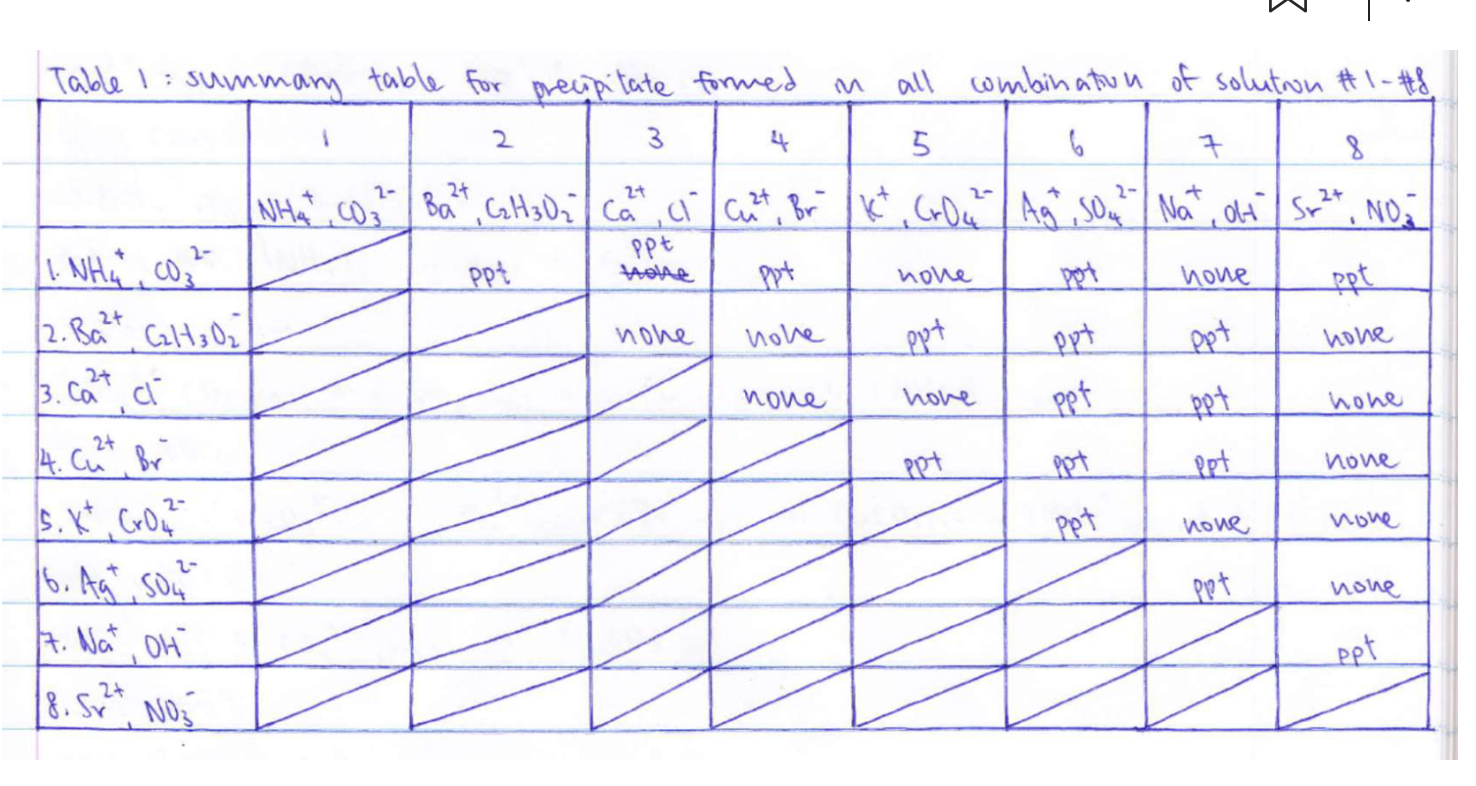 Table 1 : summary table for precipitate formed in all combination of solution #1-#8
1 2 3 4 5 6 7 8
NH₄⁺, CO₃²⁻ Ba²⁺, C₂H₃O₂⁻ Ca²⁺, Cl⁻ Cu²⁺, Br⁻ K⁺, CrO₄²⁻ Ag⁺, SO₄²⁻ Na⁺, OH⁻ Sr²⁺, NO₃⁻
1. NH₄⁺, CO₃²⁻ ppt ppt none ppt none ppt none ppt
2. Ba²⁺, C₂H₃O₂⁻ none none ppt ppt ppt none
3. Ca²⁺, Cl⁻ none none ppt ppt none
4. Cu²⁺, Br⁻ ppt ppt ppt none
5. K⁺, CrO₄²⁻ ppt none none
6. Ag⁺, SO₄²⁻ ppt none
7. Na⁺, OH⁻ ppt
8. Sr²⁺, NO₃⁻